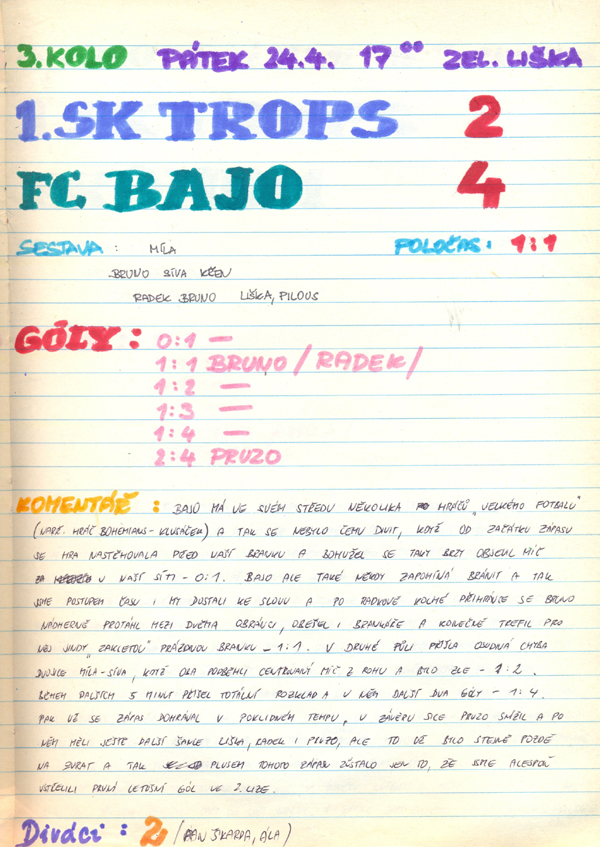 3. KOLO PÁTEK 24.4. 17⁰⁰ ZEL. LIŠKA
1. SK TROPS 2
FC BAJO 4
SESTAVA : MÍLA POLOČAS : 1:1
BRUNO SÍVA KŘEN
RADEK BRUNO LIŠKA, PILOUS
GÓLY : 0:1 —
1:1 BRUNO /RADEK/
1:2 —
1:3 —
1:4 —
2:4 PRUZO
KOMENTÁŘ : BAJO MÁ VE SVÉM STŘEDU NĚKOLIKA HRÁČŮ „VELKÉHO FOTBALU"
(NAPŘ. HRÁČ BOHEMIANS - KLUSÁČEK) A TAK SE NEBYLO ČEMU DIVIT, KDYŽ OD ZAČÁTKU ZÁPASU
SE HRA NASTĚHOVALA PŘED NAŠÍ BRANKU A BOHUŽEL SE TAKY BRZY OBJEVIL MÍČ
V NAŠÍ SÍTI - 0:1. BAJO ALE TAKÉ NĚKDY ZAPOMÍNÁ BRÁNIT A TAK
JSME POSTUPEM ČASU I MY DOSTALI KE SLOVU A PO RADKOVĚ KOLMÉ PŘIHRÁVCE SE BRUNO
NÁDHERNĚ PROTÁHL MEZI DVĚMA OBRÁNCI, OBEŠEL I BRANKÁŘE A KONEČNĚ TREFIL PRO
NĚJ JINDY „ZAKLETOU" PRÁZDNOU BRANKU - 1:1. V DRUHÉ PŮLI PŘIŠLA OSUDNÁ CHYBA
DVOJICE MÍLA-SÍVA, KDYŽ OBA PODBĚHLI CENTROVANÝ MÍČ Z ROHU A BYLO ZLE - 1:2.
BĚHEM DALŠÍCH 5 MINUT PŘIŠEL TOTÁLNÍ ROZKLAD A V NĚM DALŠÍ DVA GÓLY - 1:4.
PAK UŽ SE ZÁPAS DOHRÁVAL V POKLIDNÉM TEMPU, V ZÁVĚRU SICE PRUZO SNÍŽIL A PO
NĚM MĚLI JEŠTĚ DALŠÍ ŠANCE LIŠKA, RADEK I PRUZO, ALE TO UŽ BYLO STEJNĚ POZDĚ
NA ZVRAT A TAK PLUSEM TOHOTO ZÁPASU ZŮSTALO JEN TO, ŽE JSME ALESPOŇ
VSTŘELILI PRVNÍ LETOŠNÍ GÓL VE 2. LIZE.
Diváci : 2 (PAN ŠKARDA, ÁLA)